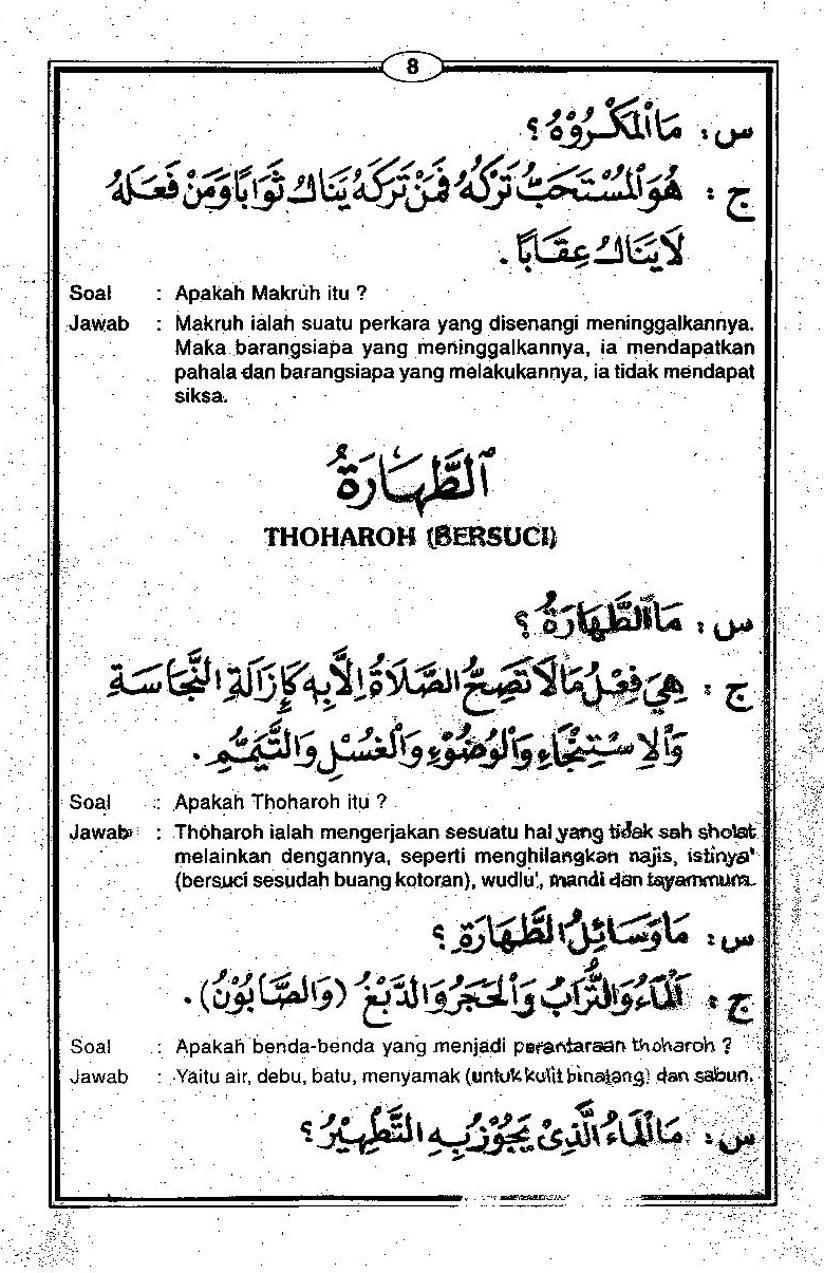 8
س : مَا الْمَكْرُوْهُ ؟
ج : هُوَ الْمُسْتَحَبُّ تَرْكُهُ فَمَنْ تَرَكَهُ يَنَالُ ثَوَابًا وَمَنْ فَعَلَهُ
لَا يَنَالُ عِقَابًا .
Soal : Apakah Makruh itu ?
Jawab : Makruh ialah suatu perkara yang disenangi meninggalkannya.
Maka barangsiapa yang meninggalkannya, ia mendapatkan
pahala dan barangsiapa yang melakukannya, ia tidak mendapat
siksa.
اَلطَّهَارَةُ
THOHAROH (BERSUCI)
س : مَا الطَّهَارَةُ ؟
ج : هِيَ فِعْلُ مَا لَا تَصِحُّ الصَّلَاةُ إِلَّا بِهِ كَإِزَالَةِ النَّجَاسَةِ
وَالْاِسْتِنْجَاءِ وَالْوُضُوْءِ وَالْغُسْلِ وَالتَّيَمُّمِ .
Soal : Apakah Thoharoh itu ?
Jawab : Thoharoh ialah mengerjakan sesuatu hal yang tidak sah sholat
melainkan dengannya, seperti menghilangkan najis, istinya'
(bersuci sesudah buang kotoran), wudlu', mandi dan tayammum.
س : مَا وَسَائِلُ الطَّهَارَةِ ؟
ج : اَلْمَاءُ وَالتُّرَابُ وَالْحَجَرُ وَالدَّبْغُ (وَالصَّابُوْنُ) .
Soal : Apakah benda-benda yang menjadi perantaraan thoharoh ?
Jawab : Yaitu air, debu, batu, menyamak (untuk kulit binatang) dan sabun.
س : مَا الْمَاءُ الَّذِيْ يَجُوْزُ بِهِ التَّطْهِيْرُ ؟